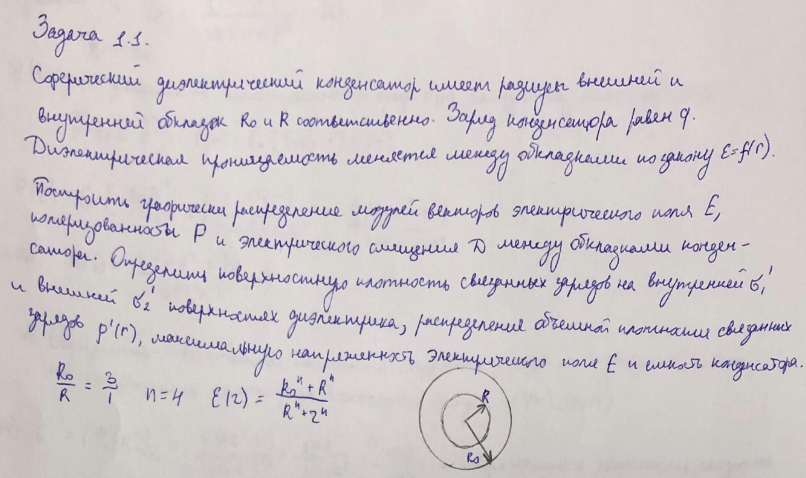 Задача 1.1.
Сферический диэлектрический конденсатор имеет радиусы внешней и
внутренней обкладок R₀ и R соответственно. Заряд конденсатора равен q.
Диэлектрическая проницаемость меняется между обкладками по закону ε=f(r).
Построить графически распределение модулей векторов электрического поля E,
поляризованности P и электрического смещения D между обкладками конден-
сатора. Определить поверхностную плотность связанных зарядов на внутренней σ₁'
и внешней σ₂' поверхностях диэлектрика, распределение объемной плотности связанных
зарядов ρ'(r), максимальную напряженность электрического поля E и емкость конденсатора.
R₀/R = 3/1 n=4 ε(r) = (R₀ⁿ+Rⁿ)/(Rⁿ+rⁿ)
R
R₀